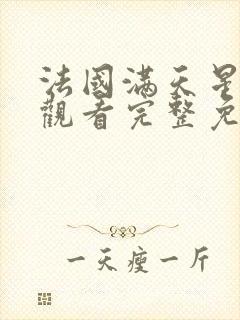 法國滿天星
觀看完整免
一天瘦一斤